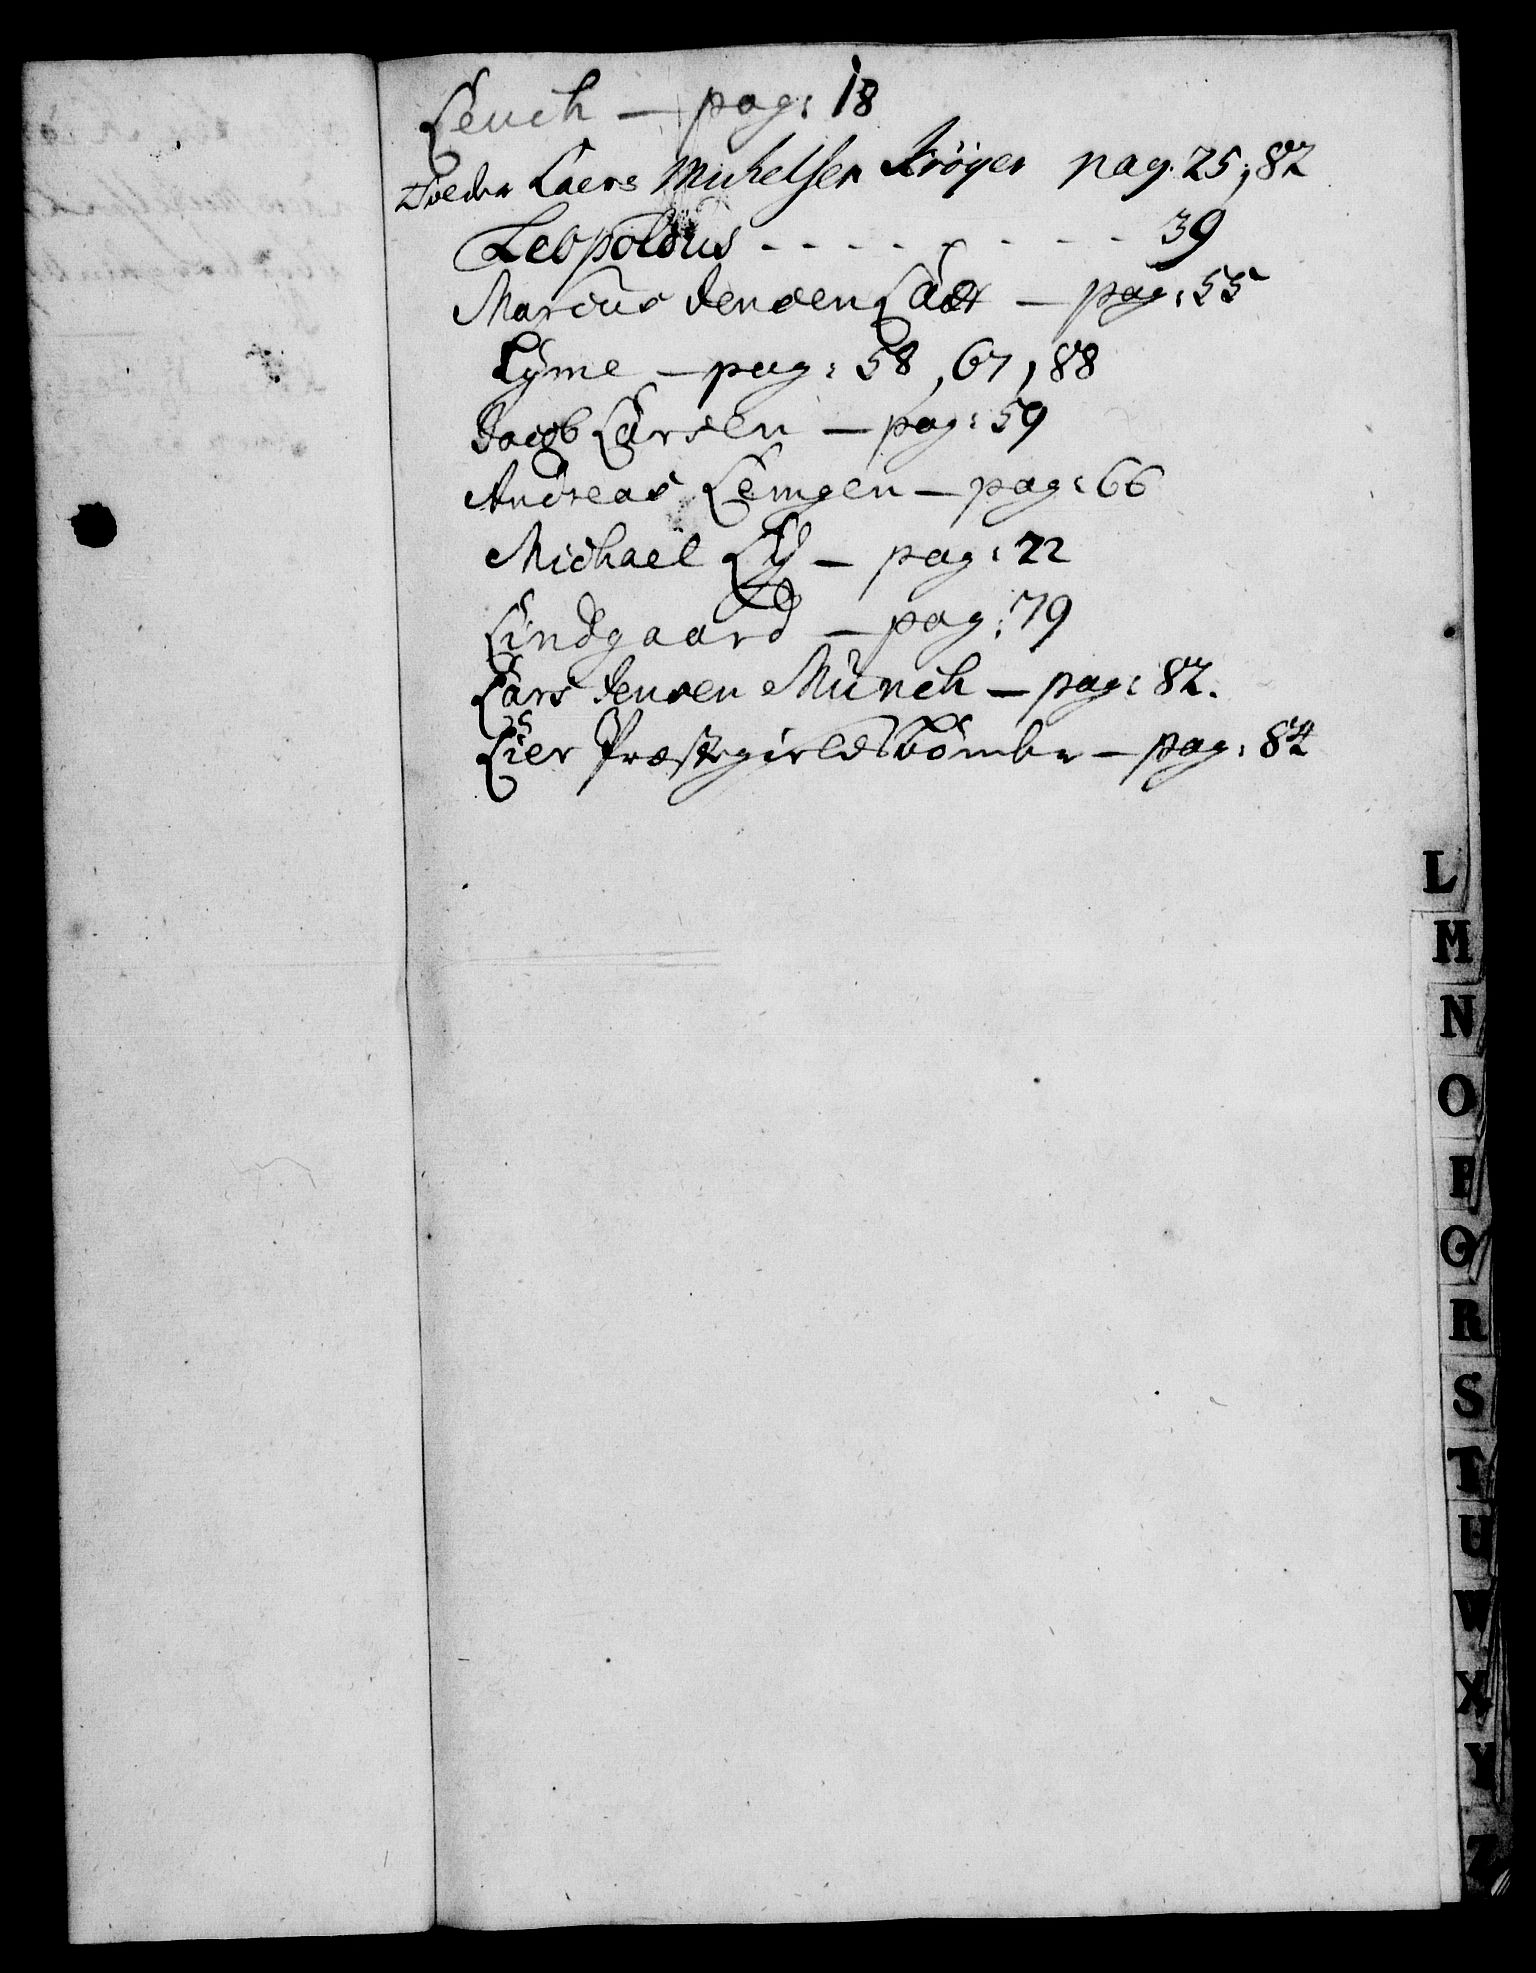 Leuch — pag: 18
Laers Michelsen Krøyer pag. 25, 82
Leopoldus - - - - - - - - - 39
Marcus Jensen — pag: 55
Lyme — pag: 58, 67, 88
Jacob Larsen — pag: 59
Andreas Lemgen — pag: 66
Michael Ly — pag: 72
Lindgaard — pag: 79
Lars Jensen Münch — pag: 82.
Lier — pag: 84
L
M
N
O
P
Q
R
S
T
U
W
X
Y
Z